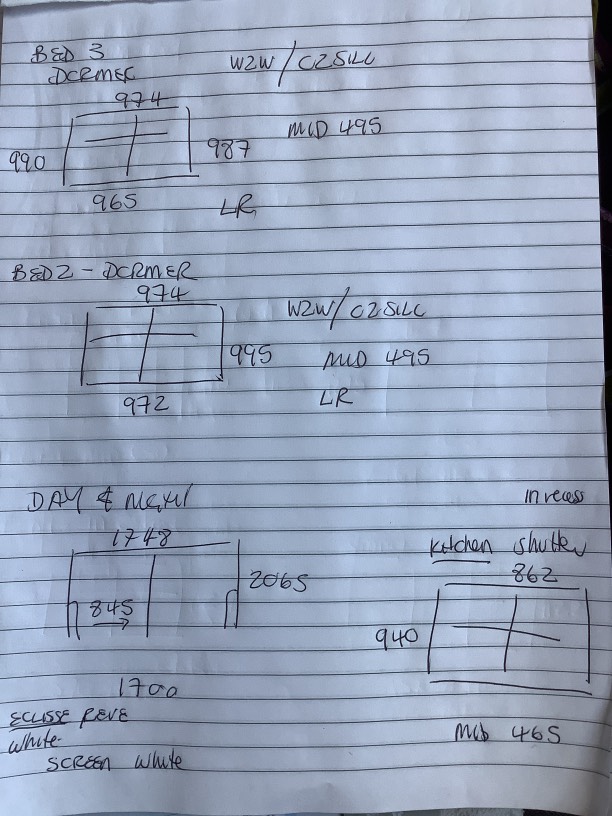 BED 3
DCRMER
W2W/C2SILL
974
MID 495
990
987
965
LR
BED2 - DCRMER
974
W2W/C2SILL
995
MID 495
972
LR
DAY & NIGHT
In recess
1748
Kitchen Shutter
862
2065
845
940
1700
ECLISSE REVE
White
MID 465
SCREEN White